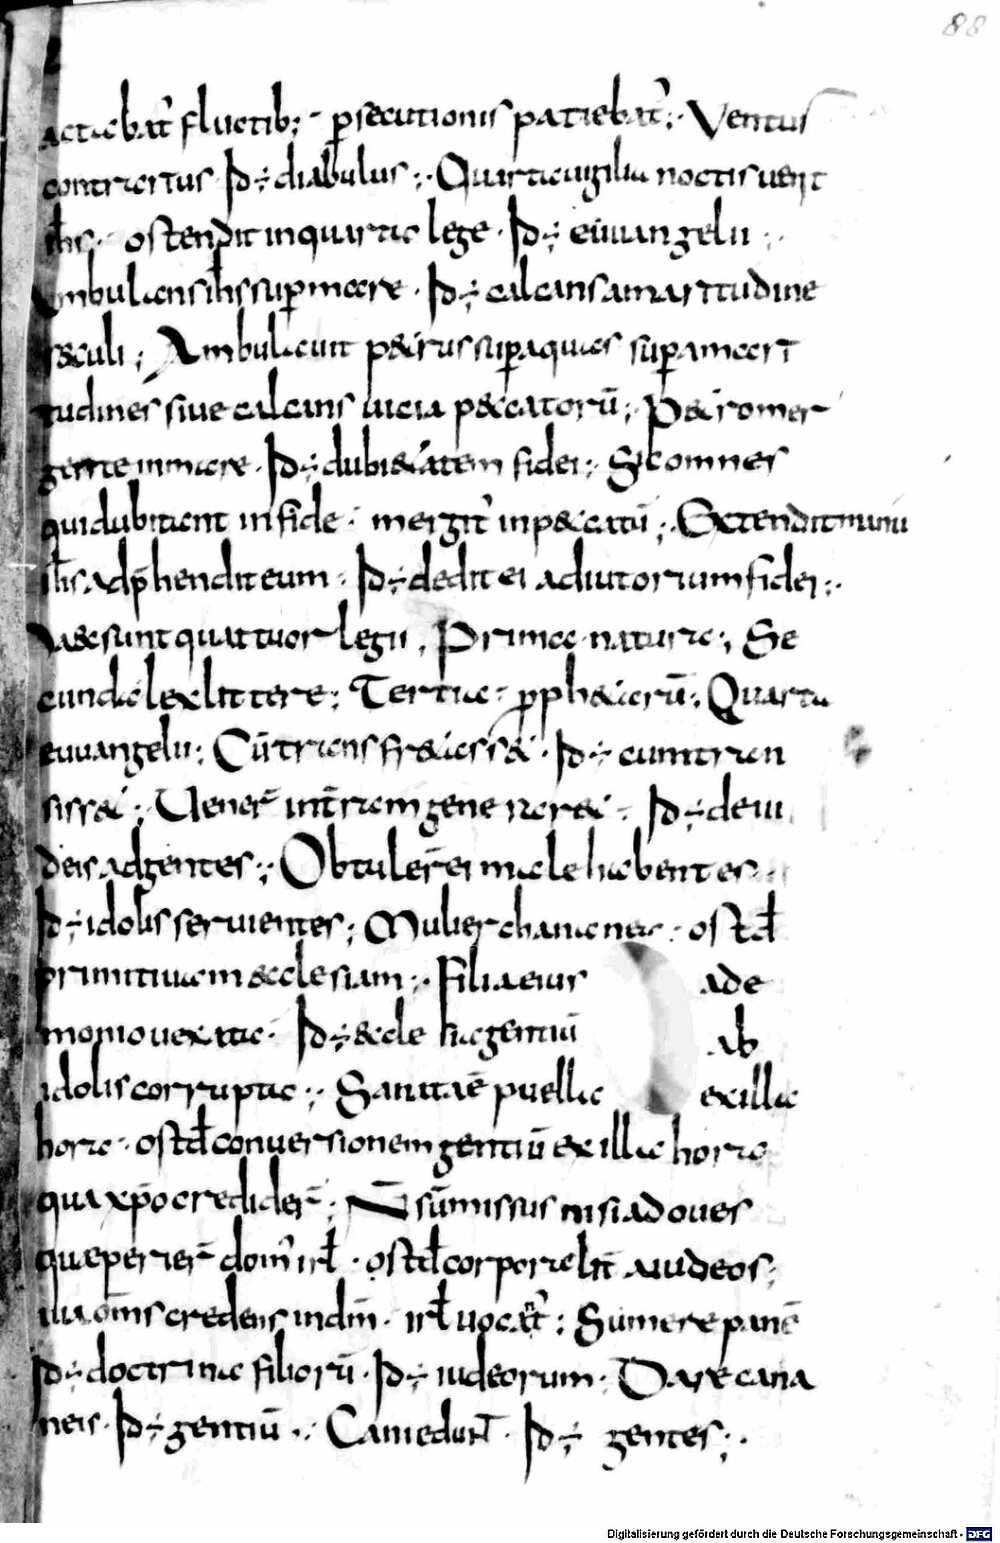 88
actabat᷑ fluctib; · ꝑsecutionis patiebat᷑ ;· Ventus
contrarius · Id÷ diabulus ;· Quarta uigilia noctis uenit
ih̅s · ostendit in quarta lege · Id÷ euuangelii ;·
Ambulans ih̅s supra mare · Id÷ calcans amaritudine
sęculi ; Ambulauit petrus suꝑ aquas suꝑ amari
tudines siue calcans uicia peccatorū ; Petro mer
gente in mare · Id÷ dubietatem fidei ;· Sic omnes
qui dubitant in fide · mergit᷑ in peccatū ;· Extendit manū
ih̅s adp̅hendit eum · Id÷ dedit ei adiutorium fidei ;·
Haec sunt quattuor legii , Prima naturae ; Se
cunda lex littere ; Tertia · ꝓphetarū ; Quarta
euuangelii ; Cū transfretasset · Id÷ cum tran
sisset ; Uener̅ in terram genenaret · Id÷ de iu
deis ad gentes ;· Obtuler̅ ei male habentes ·
Id÷ idolis seruientes ; Mulier chananea · ostd̅
primitiuam ecclesiam ;· Filia eius a de
monio uexata · Id÷ eccle haec gentiū ab
idolis corrupta ;· Sanitatē puella ex illa
hora · ostd̅ conuersionem gentiū ex illa hora
qua xp̅o credider̅ ; N̅ sū missus nisi ad oues
quae perier̅ dom᷑ irl̅ · ostd̅ corporalit̅ a iudeos ;
iam om̅s credens in dm̅ · irl̅ uocat᷑ ; Sumere panē
Id÷ doctrina filiorū · Id÷ iudeorum · Dare cana
neis · Id÷ gentiū ;· Canedunt · Id÷ gentes ;·
Digitalisierung gefördert durch die Deutsche Forschungsgemeinschaft - DFG